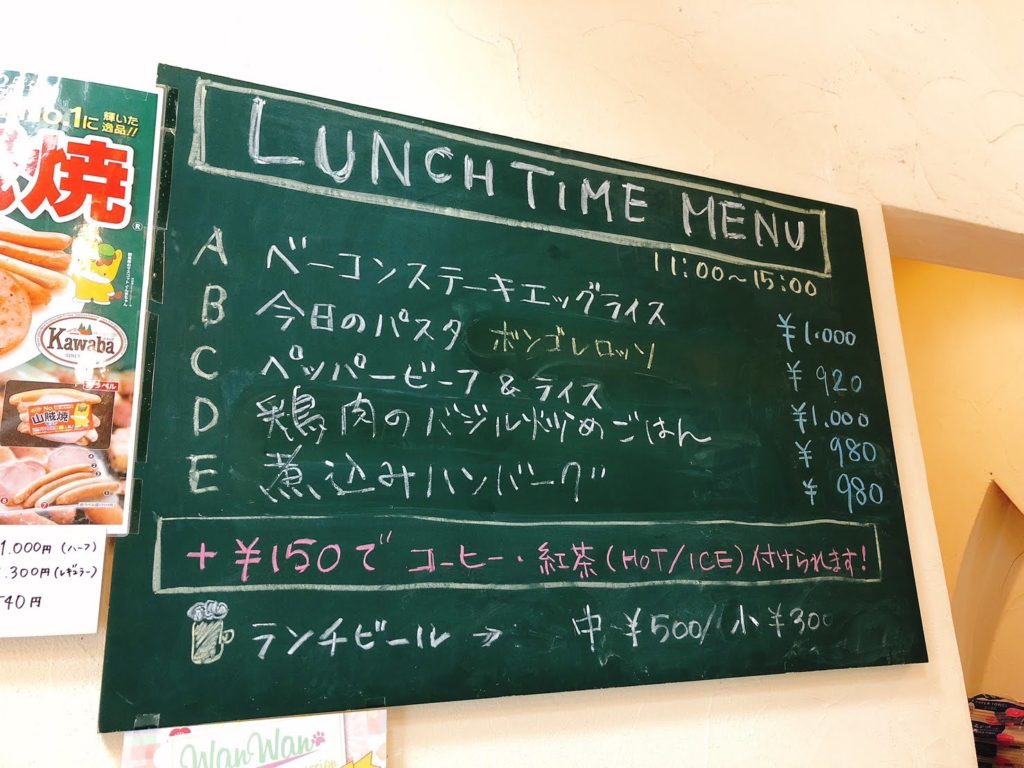 No.1に 輝いた
逸品!!
焼
®
Kawaba
SINCE
山賊焼
1.000円 (ハーフ)
.300円 (レギュラー)
540円
LUNCH TIME MENU
11:00～15:00
A ベーコンステーキエッグライス ¥1.000
B 今日のパスタ ボンゴレロッソ ¥920
C ペッパービーフ&ライス ¥1,000
D 鶏肉のバジル炒めごはん ¥980
E 煮込みハンバーグ ¥980
+¥150で コーヒー・紅茶(HOT/ICE)付けられます!
ランチビール → 中 ¥500/ 小 ¥300
WanWan